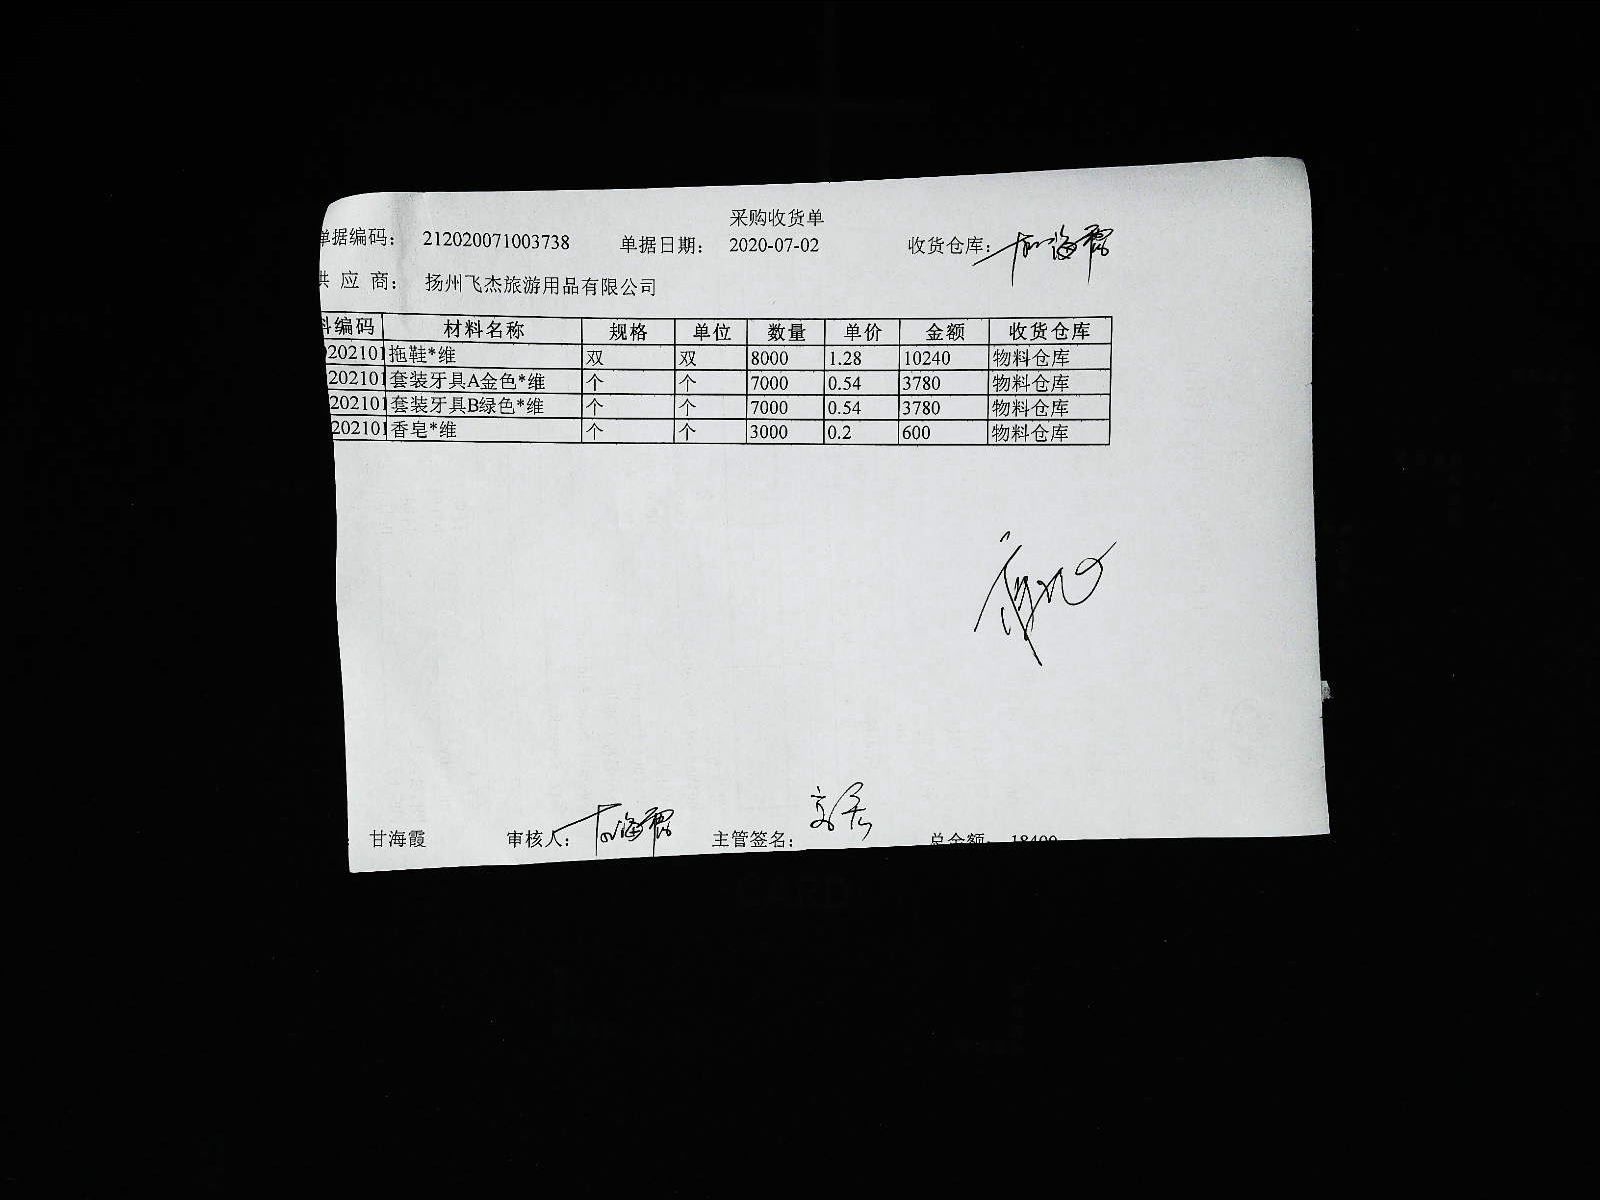 采购收货单
单据编码： 212020071003738 单据日期： 2020-07-02 收货仓库： 甘海霞
供 应 商： 扬州飞杰旅游用品有限公司
料编码 材料名称 规格 单位 数量 单价 金额 收货仓库
0202101 拖鞋*维 双 双 8000 1.28 10240 物料仓库
202101 套装牙具A金色*维 个 个 7000 0.54 3780 物料仓库
202101 套装牙具B绿色*维 个 个 7000 0.54 3780 物料仓库
202101 香皂*维 个 个 3000 0.2 600 物料仓库
： 甘海霞 审核人： 甘海霞 主管签名： 总金额： 18400